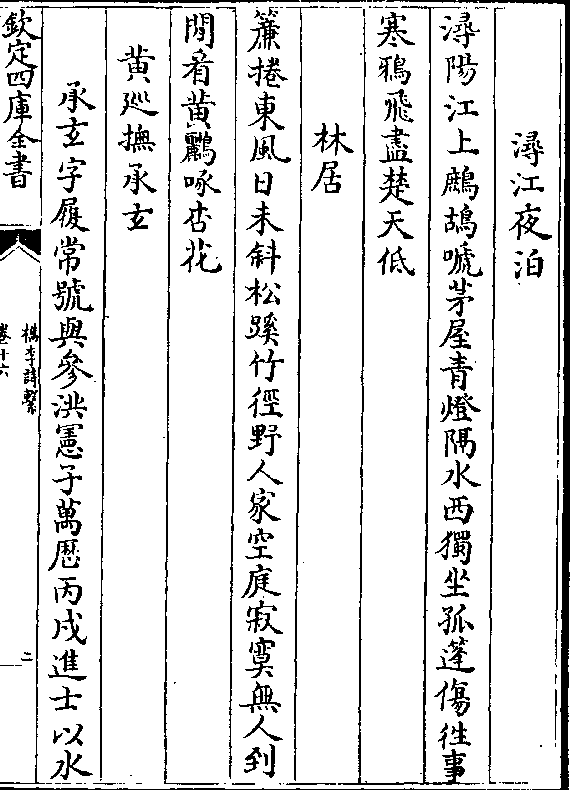 潯江夜泊
潯陽江上鷓鴣嗁茅屋青燈隔水西獨坐孤蓬傷徃事
寒鴉飛盡楚天低
林居
簾捲東風日未斜松蹊竹徑野人家空庭寂寞無人到
閒看黄鸝啄杏花
黄廵撫承玄
承玄字履常號與參洪憲子萬厯丙戌進士以水
欽定四庫全書
檇李詩繫
卷十六
二